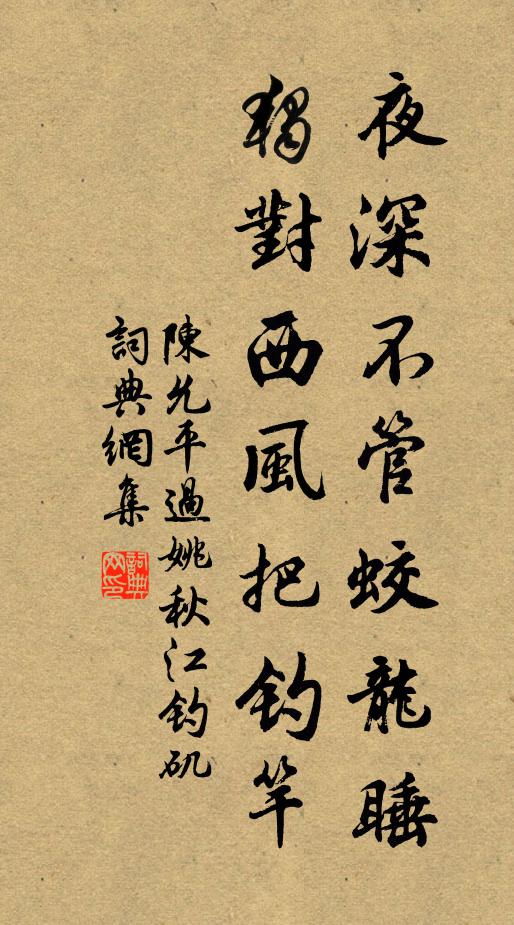 夜深不管蛟龍睡
獨對西風把釣竿
陳允平過姚秋江釣矶
詞典網集
詞典网印